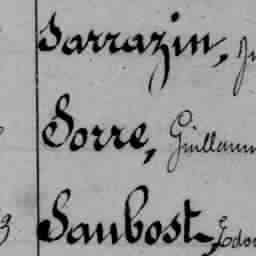 Sarrazin,
Sorre, Guillaum
3 Saubost, Edou